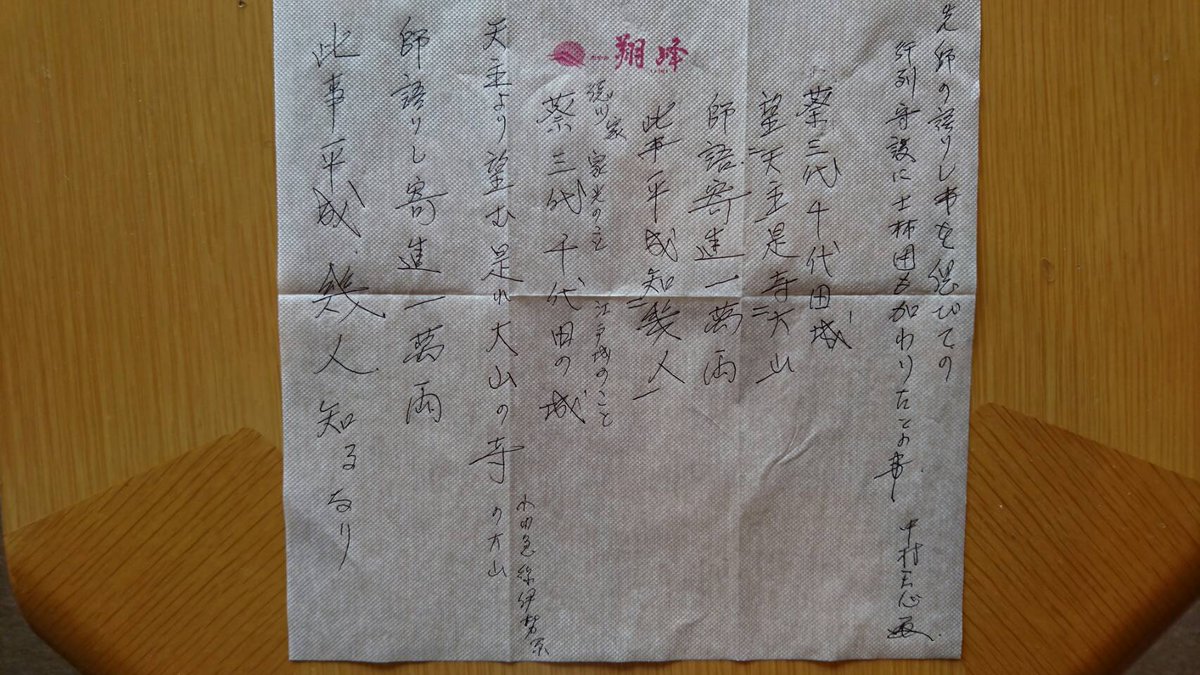 先師の語りし事を偲びての
行列守護に士林団も加わりたとの事
中村天心
葵三代千代田城
望天主是寺大山
師語寄進一萬両
此事平成知幾人
翔峰
徳川家 家光の立
江戸城のこと
葵三代千代田の城
天主より望む是れ大山の寺
の大山
小田急線伊勢原
師語りし寄進一萬両
此事平成幾人知るなり